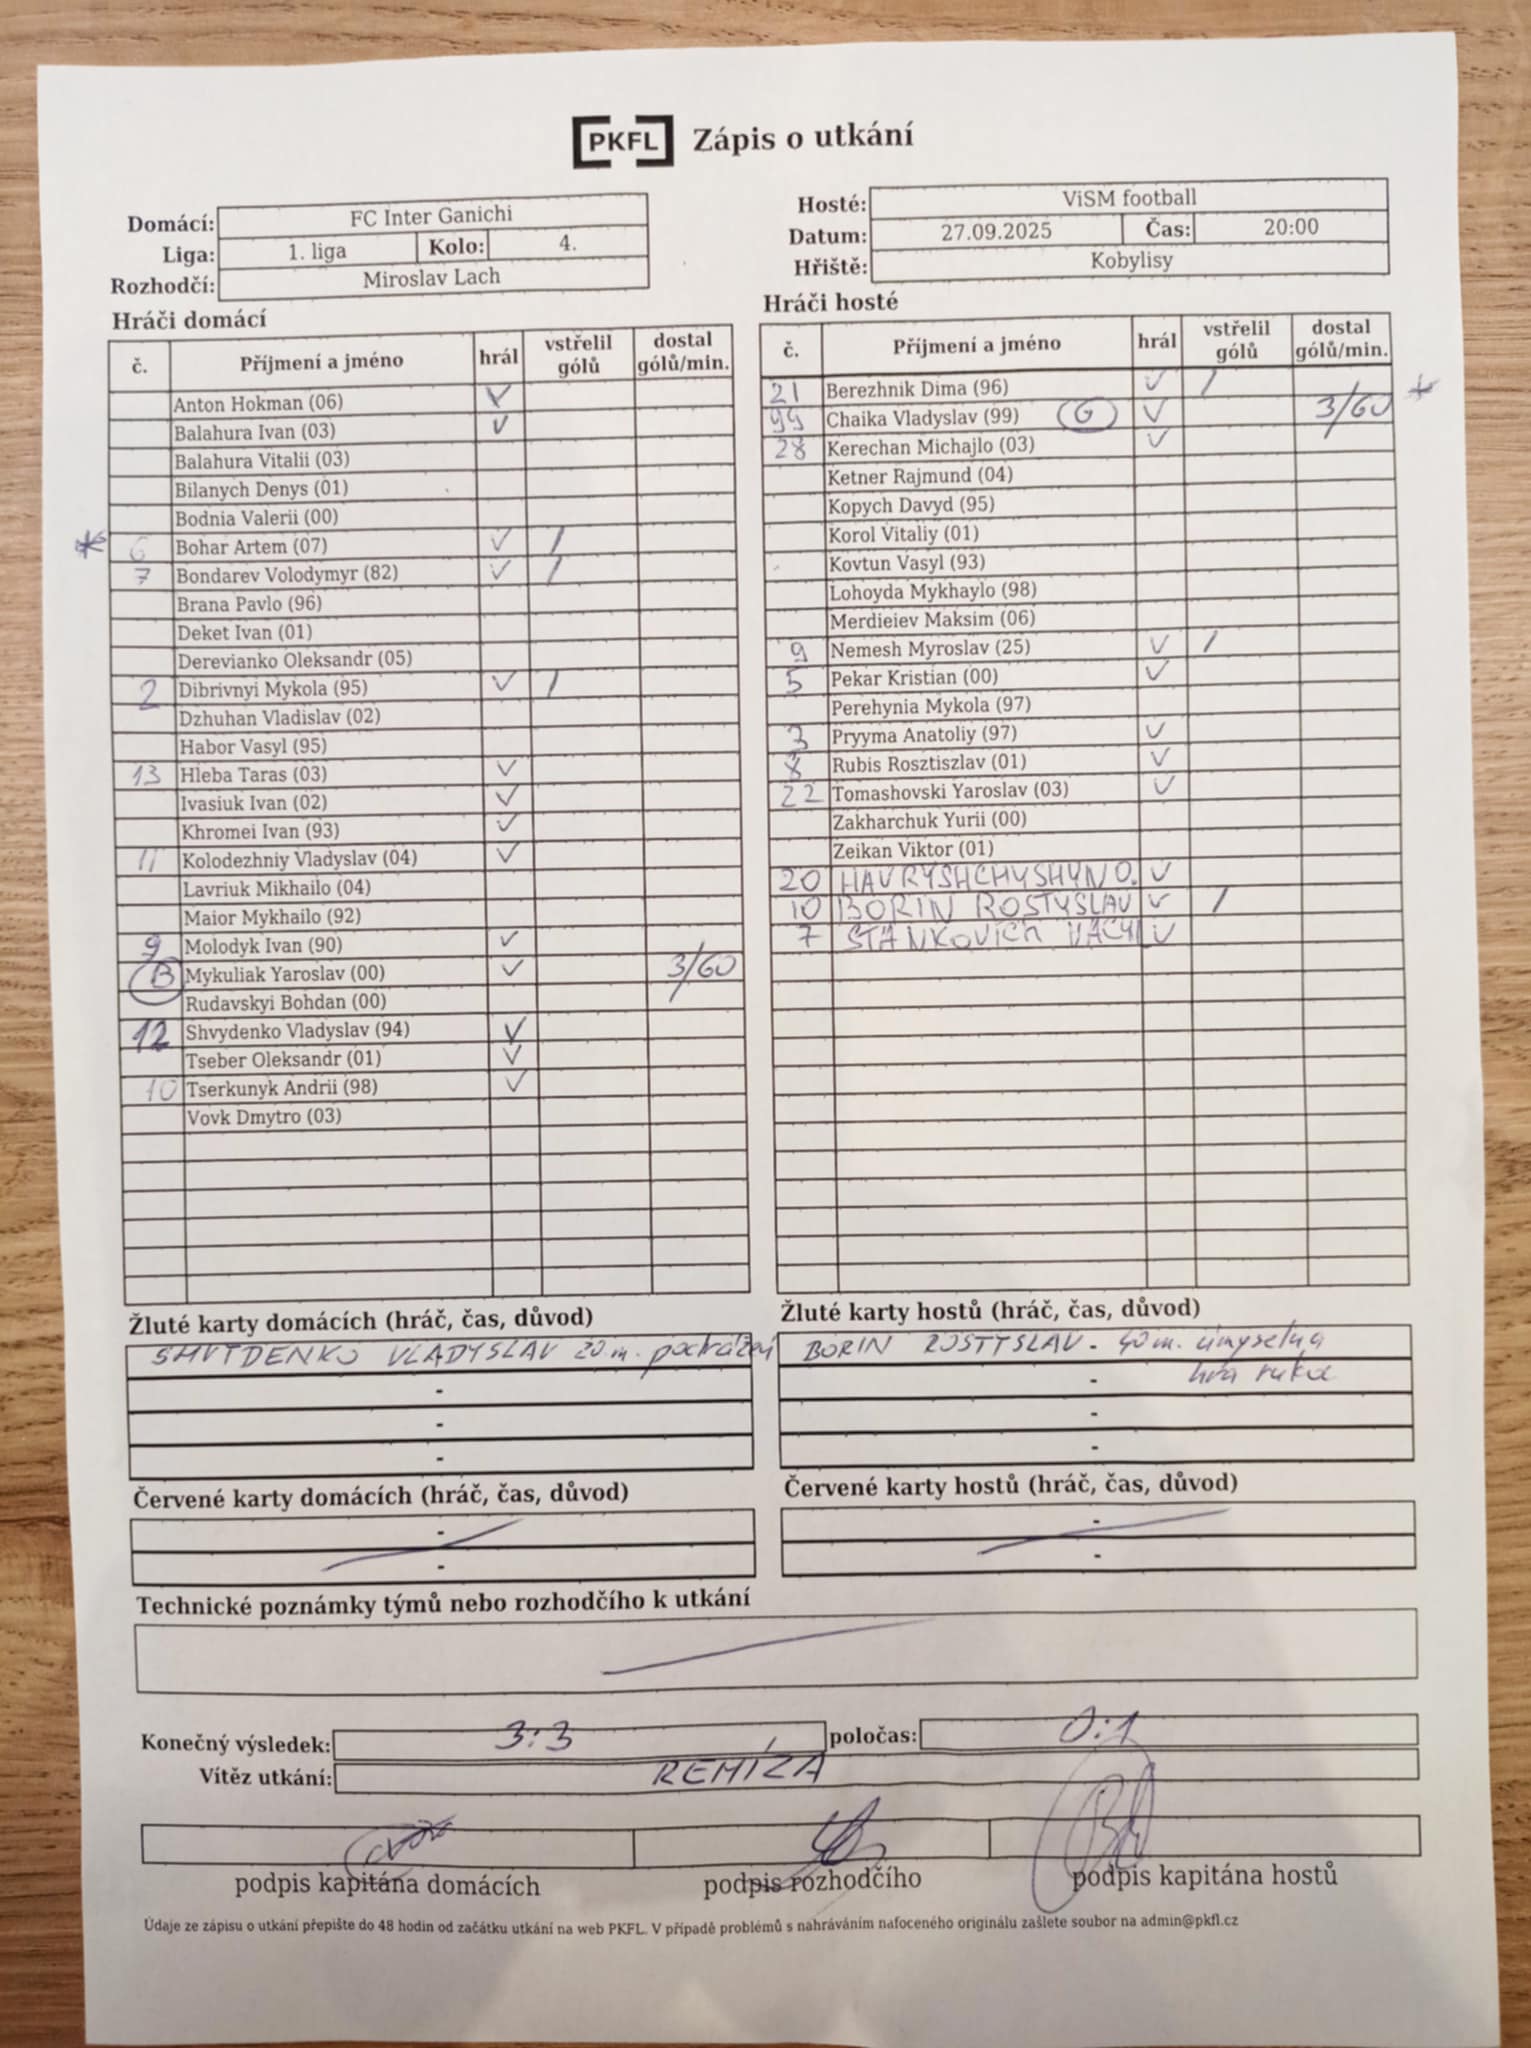 PKFL Zápis o utkání
Domácí: FC Inter Ganichi
Liga: 1. liga Kolo: 4.
Rozhodčí: Miroslav Lach
Hosté: ViSM football
Datum: 27.09.2025 Čas: 20:00
Hřiště: Kobylisy
Hráči domácí
č. Příjmení a jméno hrál vstřelil gólů dostal gólů/min.
Anton Hokman (06) V
Balahura Ivan (03) V
Balahura Vitalii (03)
Bilanych Denys (01)
Bodnia Valerii (00)
* 6 Bohar Artem (07) V /
7 Bondarev Volodymyr (82) V /
Brana Pavlo (96)
Deket Ivan (01)
Derevianko Oleksandr (05)
2 Dibrivnyi Mykola (95) V /
Dzhuhan Vladislav (02)
Habor Vasyl (95)
13 Hleba Taras (03) V
Ivasiuk Ivan (02) V
Khromei Ivan (93) V
11 Kolodezhniy Vladyslav (04) V
Lavriuk Mikhailo (04)
Maior Mykhailo (92)
9 Molodyk Ivan (90) V
B Mykuliak Yaroslav (00) V 3/60
Rudavskyi Bohdan (00)
12 Shvydenko Vladyslav (94) V
Tseber Oleksandr (01) V
10 Tserkunyk Andrii (98) V
Vovk Dmytro (03)
Hráči hosté
č. Příjmení a jméno hrál vstřelil gólů dostal gólů/min.
21 Berezhnik Dima (96) V /
99 Chaika Vladyslav (99) G V 3/60 *
28 Kerechan Michajlo (03) V
Ketner Rajmund (04)
Kopych Davyd (95)
Korol Vitaliy (01)
Kovtun Vasyl (93)
Lohoyda Mykhaylo (98)
Merdieiev Maksim (06)
9 Nemesh Myroslav (25) V /
5 Pekar Kristian (00) V
Perehynia Mykola (97)
3 Pryyma Anatoliy (97) V
8 Rubis Rosztiszlav (01) V
22 Tomashovski Yaroslav (03) V
Zakharchuk Yurii (00)
Zeikan Viktor (01)
20 HAVRYSHCHYSHYN O. V
10 BORIN ROSTYSLAV V /
7 STANKOVICH VACYL V
Žluté karty domácích (hráč, čas, důvod)
SHVYDENKO VLADYSLAV 20 m. podražení
-
-
-
Žluté karty hostů (hráč, čas, důvod)
BORIN ROSTYSLAV - 40 m. úmyselna
- hra ruka
-
-
Červené karty domácích (hráč, čas, důvod)
-
-
Červené karty hostů (hráč, čas, důvod)
-
-
Technické poznámky týmů nebo rozhodčího k utkání
Konečný výsledek: 3:3 poločas: 0:1
Vítěz utkání: REMÍZA
podpis kapitána domácích podpis rozhodčího podpis kapitána hostů
Údaje ze zápisu o utkání přepište do 48 hodin od začátku utkání na web PKFL. V případě problémů s nahráváním nafoceného originálu zašlete soubor na admin@pkfl.cz